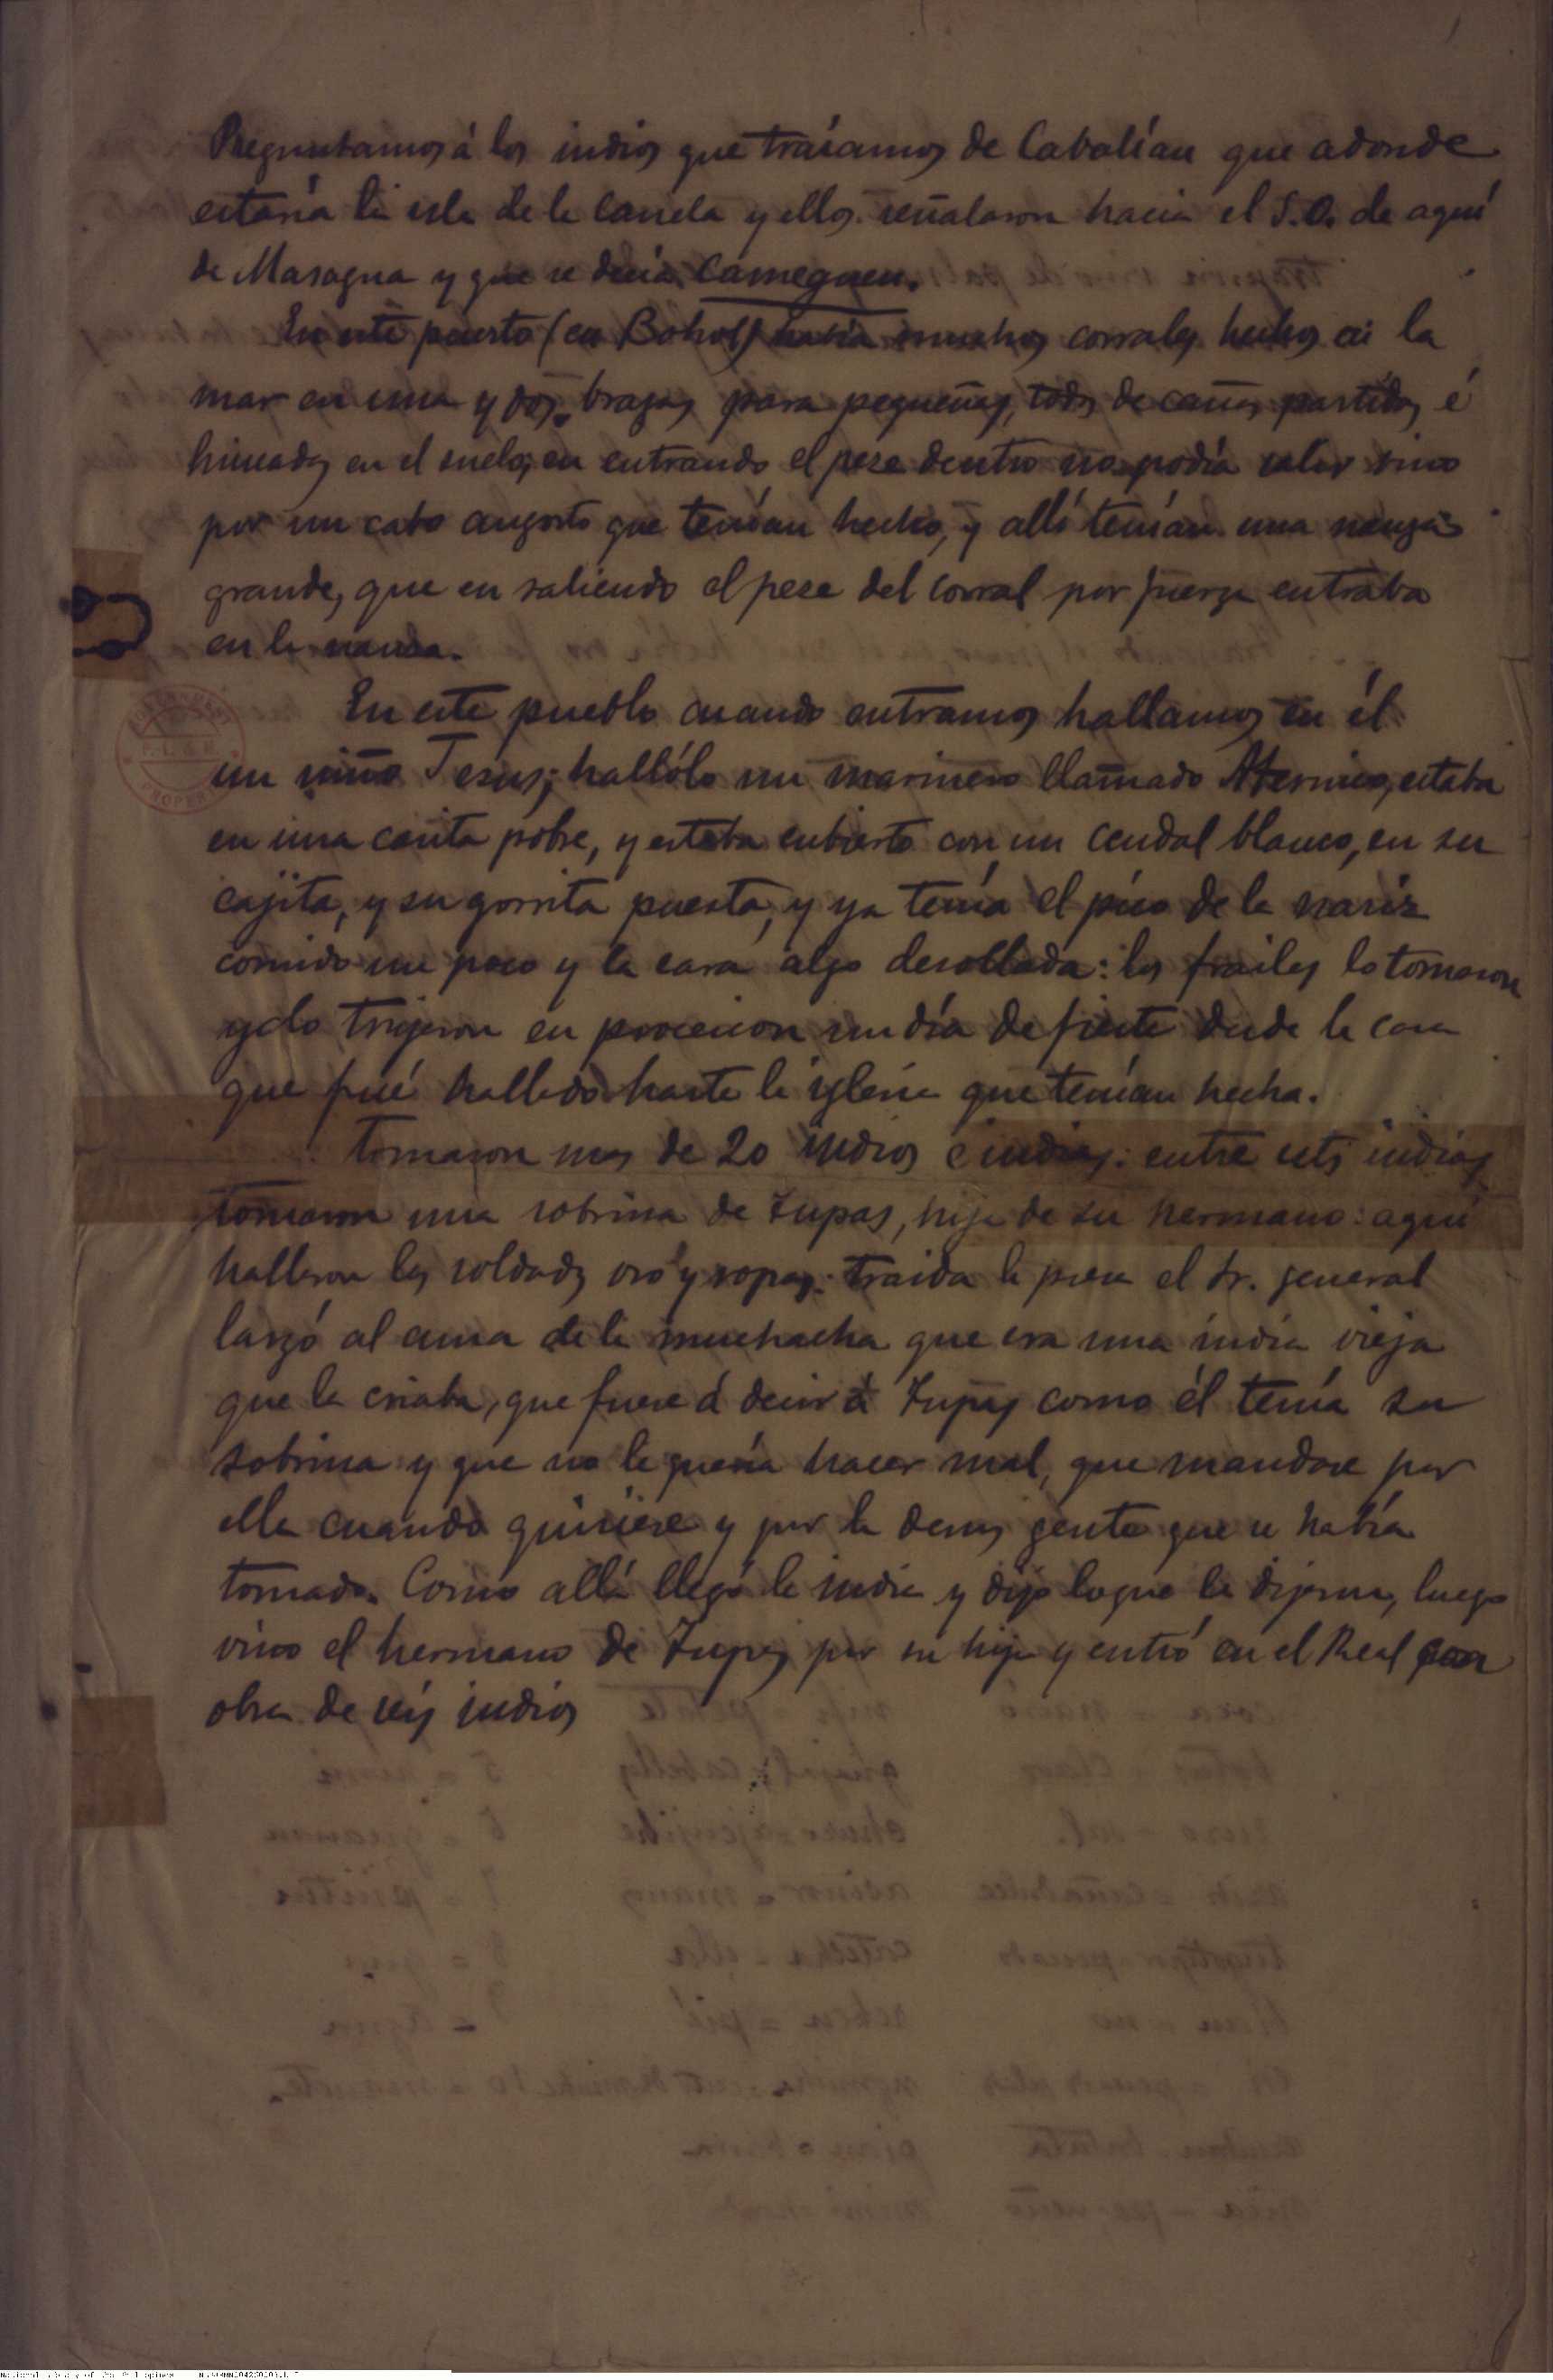 Preguntamos á los indios que traíamos de Cabalían que adonde
estaría la isla de la Canela y ellos señalaron hacia el S.O. de aquí
de Masagua y que se decía Cameguen.
En este puerto (en Bohol) había muchos corrales hechos en la
mar en una y dos brazas para pequeñas, todos de cañas partidas é
hincadas en el suelo; en entrando el pese dentro no podía salir sino
por un cabo angosto que tenían hecho, y allí tenían una nanza
grande, que en saliendo el pese del corral por fuerza entraba
en la nanza.
En este pueblo cuando entramos hallamos en él
un niño Jesus; hallólo un marinero llamado estaba
en una casita pobre, y estaba cubierto con un cendal blanco, en su
cajita, y su gorrita puesta, y ya tenía el pico de la nariz
comido un poco y la cara algo desollada: los frailes lo tomaron
y lo trujeron en procesion un día de fiesta desde la casa
que fué hallado hasta la iglesia que tenían hecha.
Tomaron mas de 20 indios é indias: entre estos indios
tomaron una sobrina de Tupas, hija de su hermano: aquí
hallaron los soldados oro y ropas. Traida la presa el Sr. general
larzó al ama de la muchacha que era una india vieja
que la criaba, que fuese á decir á Tupas como él tenía su
sobrina y que no le quería hacer mal, que mandase por
ella cuando quisiese y por la demas gente que se había
tomado. Como allá llegó la india y dijo lo que le dijeron, luego
vino el hermano de Tupas por su hija y entró en el Real con
obra de seis indios